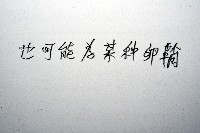 也可能为某种卵鞘